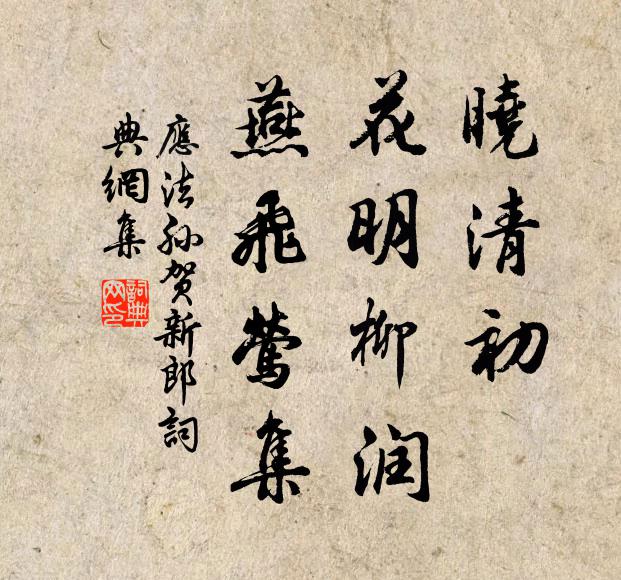 曉清初
花明柳润
燕飛鶯集
應法孫賀新郎詞
典網集
詞典網印